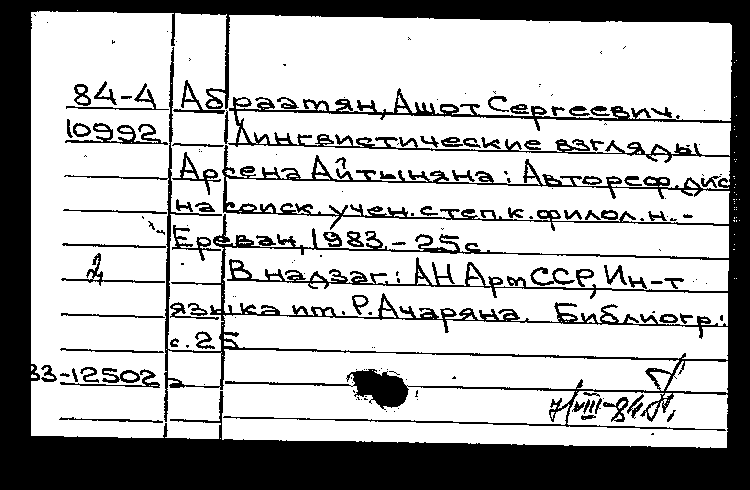 84-4 Абраатян, Ашот Сергеевич.
10992 Лингвистические взгляды
Арсена Айтыняна: Автореф. дис
на соиск. учен. степ. к. филол. н. -
Ереван, 1983. - 25 с.
В надзаг.: АН Арм ССР, Ин-т
языка им. Р. Ачаряна. Библиогр.:
с. 25
33-12502